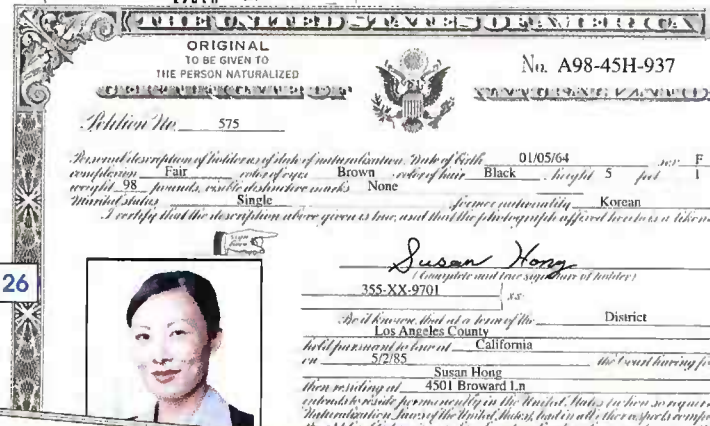 THE UNITED STATES OF AMERICA
ORIGINAL
TO BE GIVEN TO
THE PERSON NATURALIZED
No. A98-45H-937
CERTIFICATE OF
NATURALIZATION
Petition No. 575
Personal description of holder as of date of naturalization: Date of birth 01/05/64 sex F
complexion Fair color of eyes Brown color of hair Black height 5 feet 1
weight 98 pounds, visible distinctive marks None
Marital status Single former nationality Korean
I certify that the description above given is true, and that the photograph affixed hereto is a likene
Susan Hong
(Complete and true signature of holder)
355-XX-9701 } ss:
Be it known, that at a term of the District
Los Angeles County
held pursuant to law at California
on 5/2/85 the Court having fo
Susan Hong
then residing at 4501 Broward Ln
intends to reside permanently in the United States (when so requir
Naturalization Laws of the United States), had in all other respects compl
26